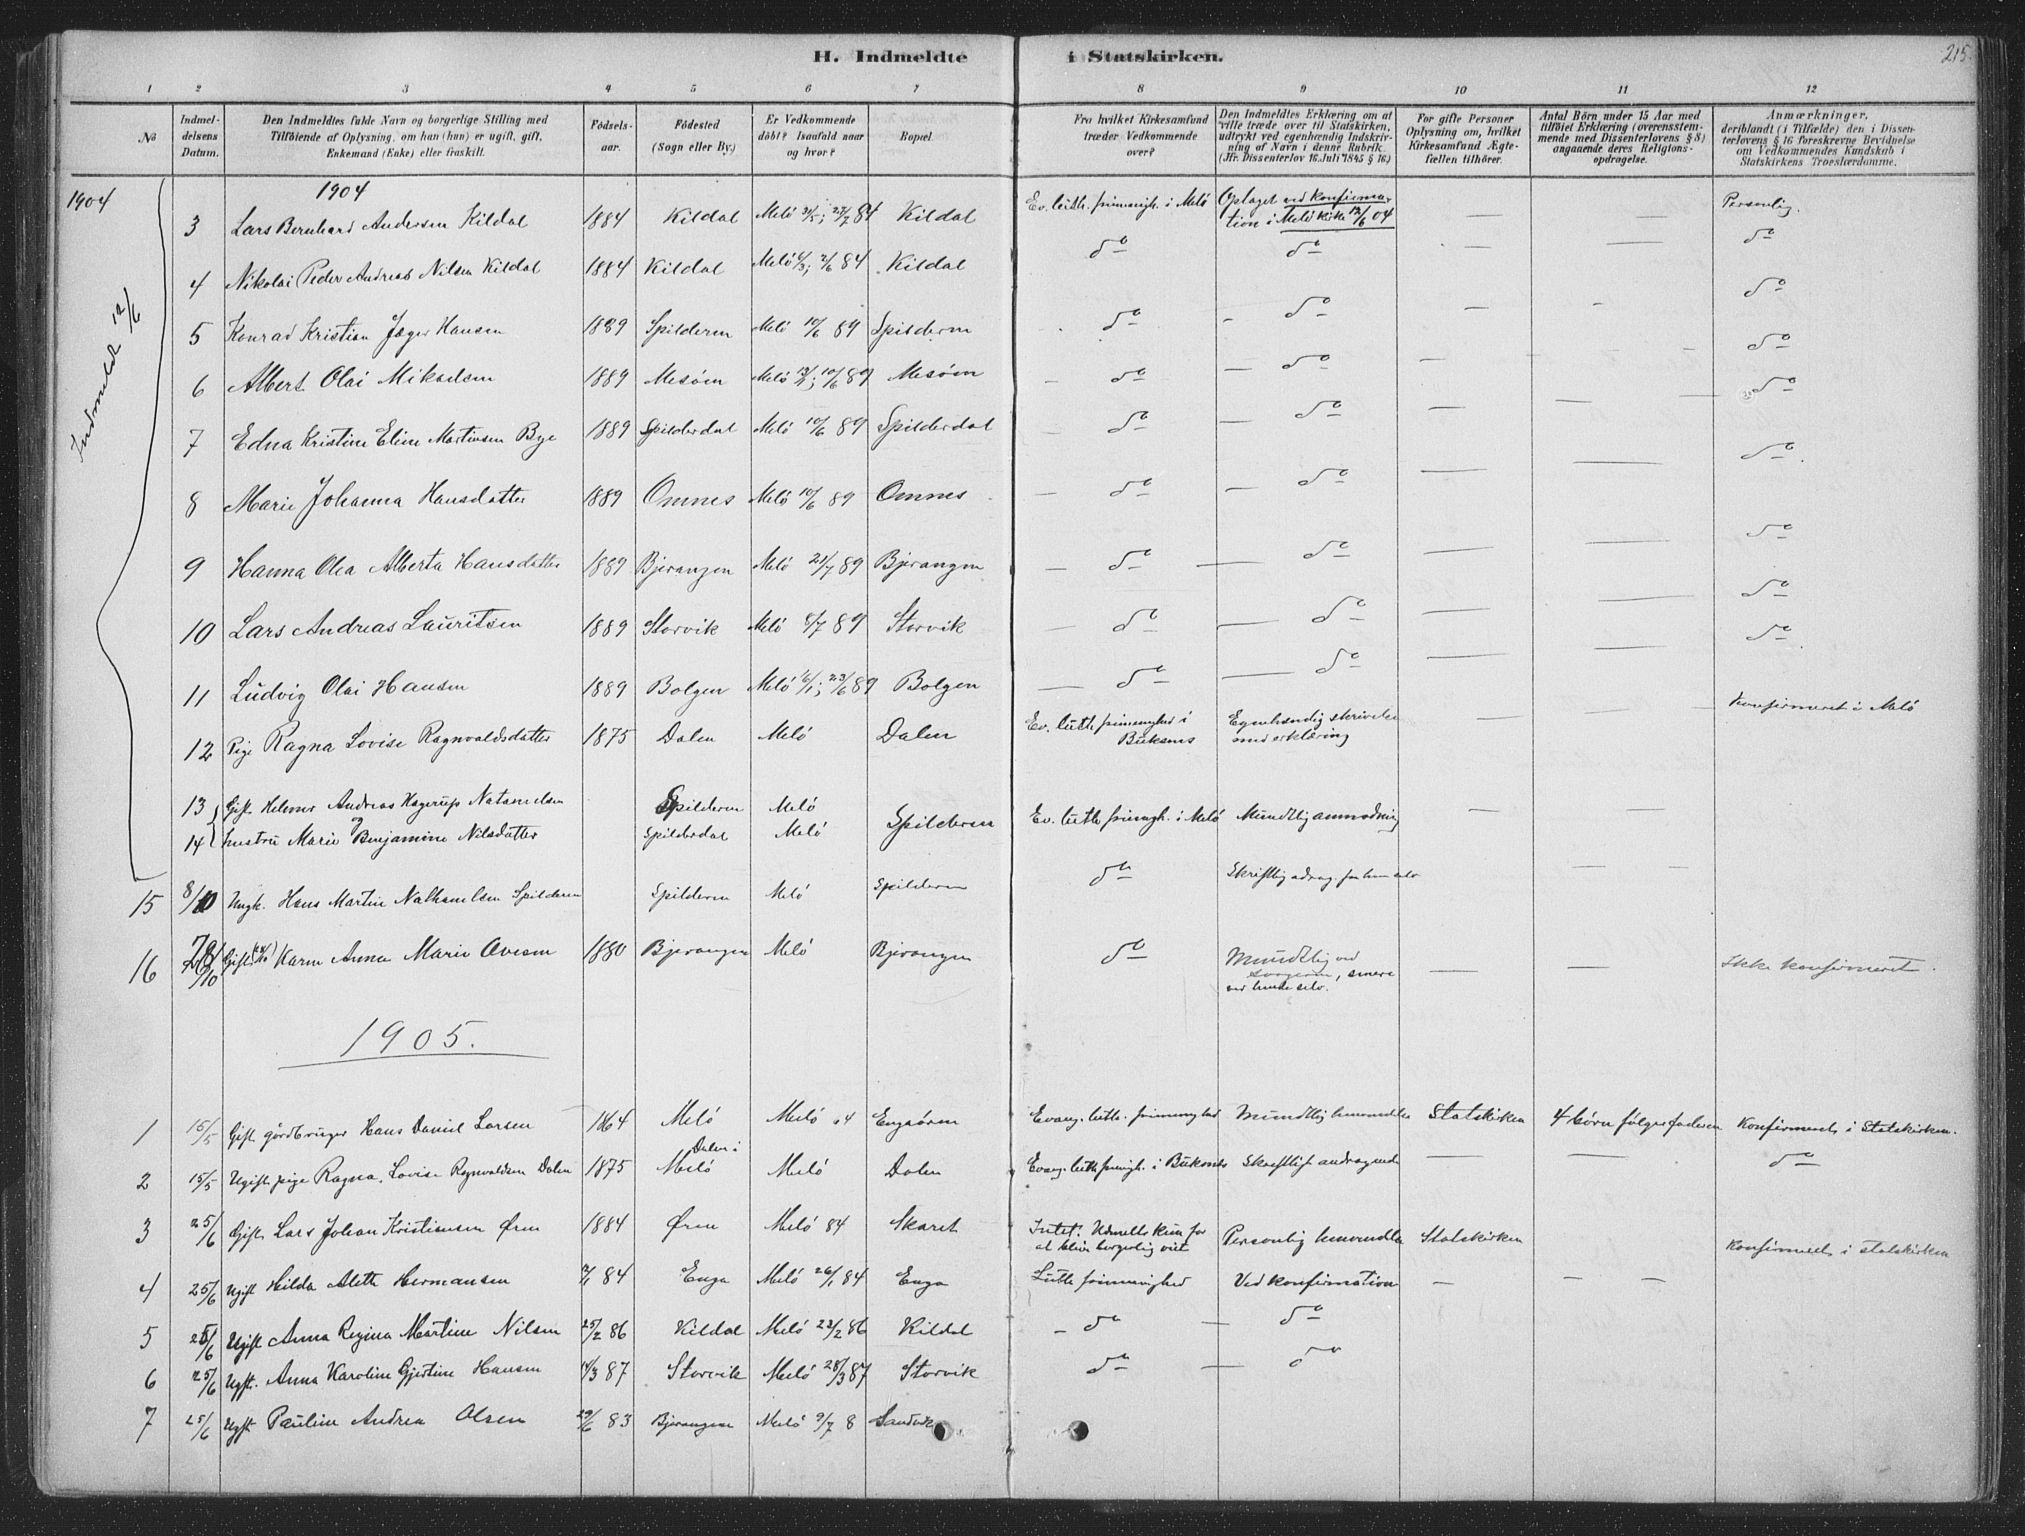 H. Indmeldte i Statskirken.
215.
1 2 3 4 5 6 7 8 9 10 11 12
No
Indmel-
delsens
Datum.
Den Indmeldtes fulde Navn og borgerlige Stilling med
Tilföiende af Oplysning, om han (hun) er ugift, gift,
Enkemand (Enke) eller fraskilt.
Födsels-
aar.
Födested
(Sogn eller By.)
Er Vedkommende
döbt? Isaafald naar
og hvor?
Bopæl.
Fra hvilket Kirkesamfund
træder Vedkommende
over?
Den Indmeldtes Erklæring om at
ville træde over til Statskirken,
udtrykt ved egenhændig Indskriv-
ning af Navn i denne Rubrik.
(Jfr. Dissenterlov 16. Juli 1845 § 16.)
For gifte Personer
Oplysning om, hvilket
Kirkesamfund Ægte-
fællen tilhörer.
Antal Börn under 15 Aar med
tilföiet Erklæring (overensstem-
mende med Dissenterlovens § 8)
angaaende deres Religions-
opdragelse.
Anmærkninger,
deriblandt (i Tilfælde) den i Dissen-
terlovens § 16 foreskrevne Bevidnelse
om Vedkommendes Kundskab i
Statskirkens Troeslærdomme.
1904
1904
Indmeldt 12/6
3 Lars Bernhard Andersen Kildal 1884 Kildal Melö 31/5; 27/7 84 Kildal Ev. luth. frimenigh. i Melö Optaget ved konfirma- — — Personlig.
tion i Melö kirke 12/6 04
4 Nikolai Peder Andreas Nilsen Kildal 1884 Kildal Melö 4/3; 2/6 84 Kildal do do — — do
5 Konrad Kristian Jæger Hansen 1889 Spilderen Melö 10/6 89 Spilderen do — do — — do
6 Albert Olai Mikalsen 1889 Mesöen Melö 10/6 89 Mesöen — do — do — — do
7 Edna Kristine Eline Martinsen Bye 1889 Spilderdal Melö 10/6 89 Spilderdal — do — do — — do
8 Marie Johanna Hansdatter 1889 Omnes Melö 10/6 89 Omnes — do — do — — do
9 Hanna Olea Alberta Hansdatter 1889 Bjerangen Melö 21/7 89 Bjerangen — do — do — — do
10 Lars Andreas Lauritsen 1889 Storvik Melö 8/7 89 Storvik — do — do — — do
11 Ludvig Olai Hansen 1889 Bolgen Melö 6/1; 23/6 89 Bolgen — do — do — — do
12 Pige Ragna Lovise Ragnvaldsdatter 1875 Dalen Melö Dalen Ev. luth. frimenighed i Egenhændig skrivelse — — Konfirmeret i Melö
Buksnes med erklæring
13 Gift Helmer Andreas Hagerup Natanielsen Spilderen Melö
og Spilderen Ev. luth. frimngh. i Melö Mundtlig anmodning — —
14 hustru Marie Benjamine Nilsdatter Spilderdal Melö
15 8/10 Ungk. Hans Martin Nathanielsen Spilderen Spilderen Melö Spilderen do Skriftlig — —
16 Gift Karen Anna Marie Ovesen 1880 Bjerangen Melö Bjerangen do Mundtlig ved — — Ikke konfirmeret.
, senere
ved hende selv.
1905.
1 15/5 Gift gårdbruger Hans Daniel Larsen 1864 Melö Melö 64 Engaören Evang. luth. frimenighed Mundtlig henvendelse Statskirken 4 börn fölger faderen Konfirmeret i Statskirken.
2 15/5 Ugift pige Ragna Lovise Ragnvaldsen Dalen 1875 Dalen i Melö Melö Dalen Evang. luth frimgh. i Buksnes Skriftligt andragende — — do
3 25/6 Gift Lars Johan Kristiansen Øren 1884 Øren Melö 84 Skaret Intet! Udmeldt kun for Personlig henvendelse Statskirken Konfirmeret i statskirken
at blive borgerlig viet
4 25/6 Ugift Hilda Aleth Hermansen 7/1 84 Enga Melö 26/1 84 Enga Luth frimenighed Ved konfirmation — — —
5 25/6 Ugift Anna Regina Martine Nilsen 25/2 86 Kildal Melö 23/2 86 Kildal — do — do
6 25/6 Ugift. Anna Karoline Gjertine Hansen 14/3 87 Storvik Melö 28/3 87 Storvik do — do
7 25/6 Ugift Pauline Andrea Olsen 29/6 83 Bjerangen Melö 9/7 8 Sandvik